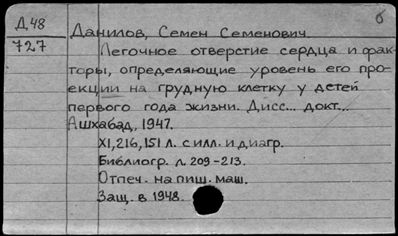 б
Д48
727
Данилов, Семен Семенович
Легочное отверстие сердца и фак-
торы, определяющие уровень его про-
екции на грудную клетку у детей
первого года жизни. Дисс... докт...
Ашхабад, 1947.
XI, 216, 151 л. с илл. и диагр.
Библиогр. л. 209-213.
Отпеч. на пиш. маш.
Защ. в 1948.